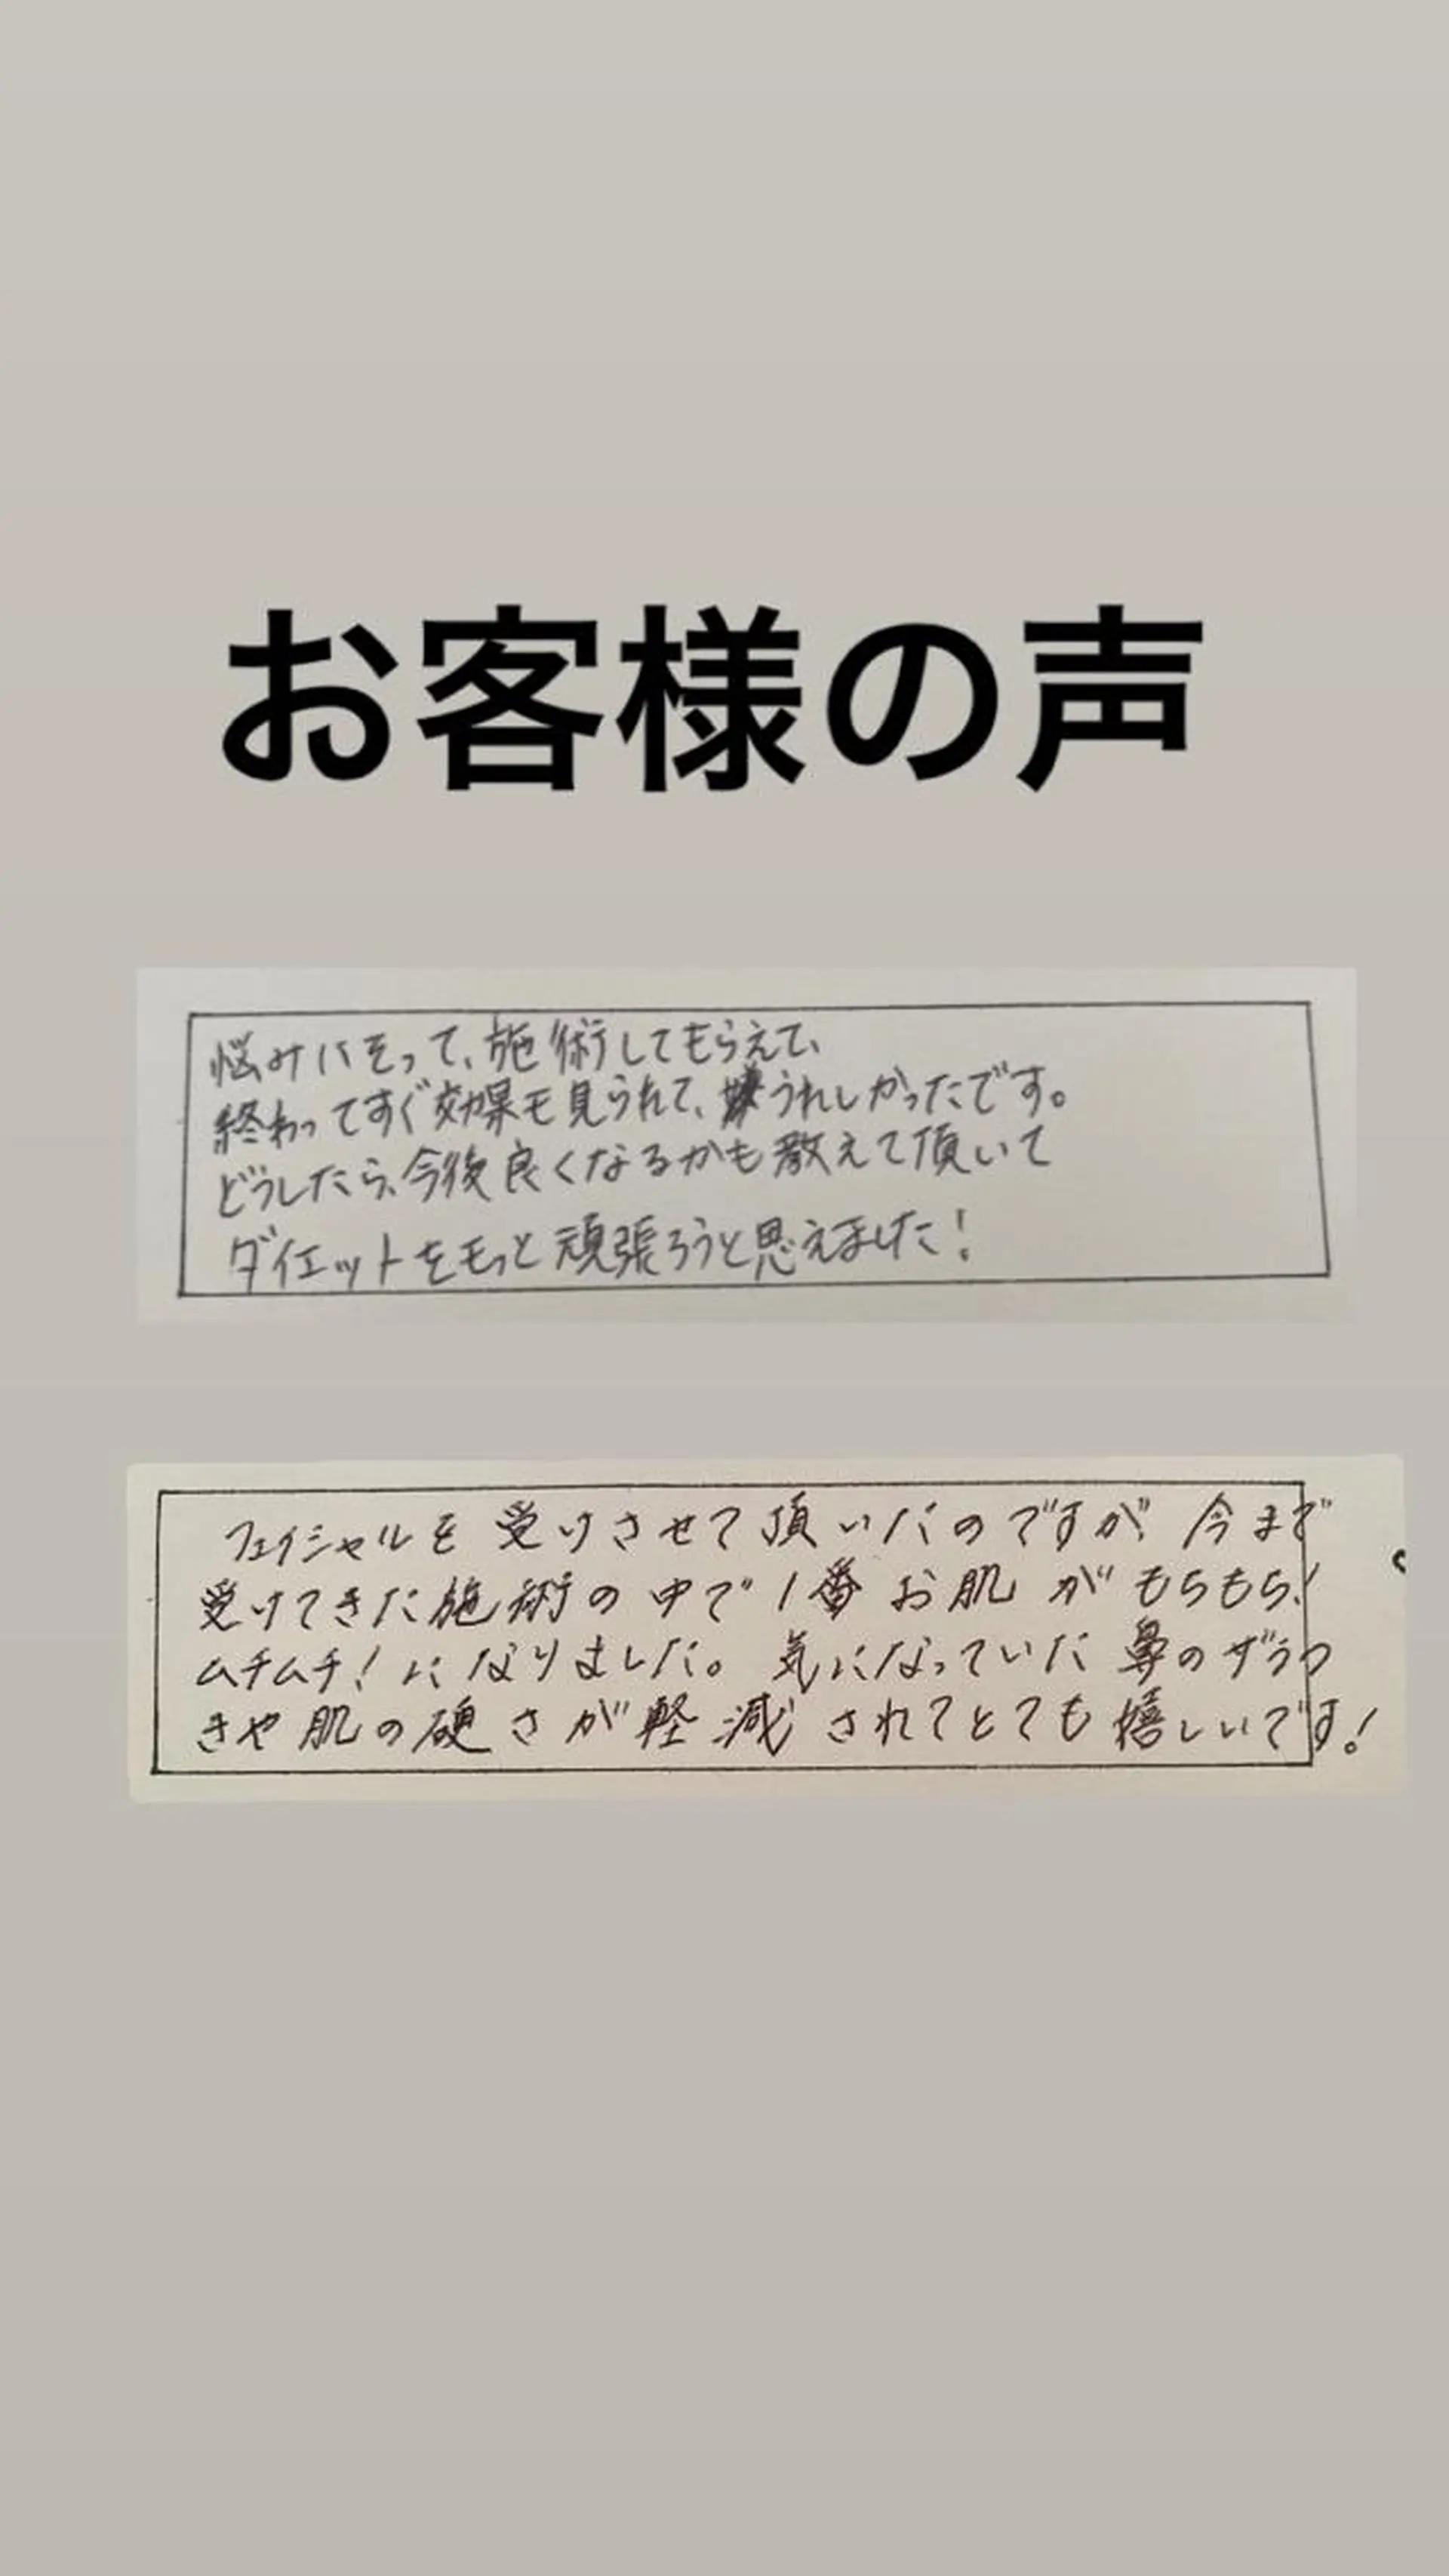 お客様の声
悩みにそって、施術してもらえて、
終わってすぐ効果も見られて、うれしかったです。
どうしたら、今後良くなるかも教えて頂いて
ダイエットをもっと頑張ろうと思えました!
フェイシャルを受けさせて頂いたのですが、今まで
受けてきた施術の中で1番お肌がもちもち!
ムチムチ!になりました。気になっていた鼻のザラつ
きや肌の硬さが軽減されてとても嬉しいです!